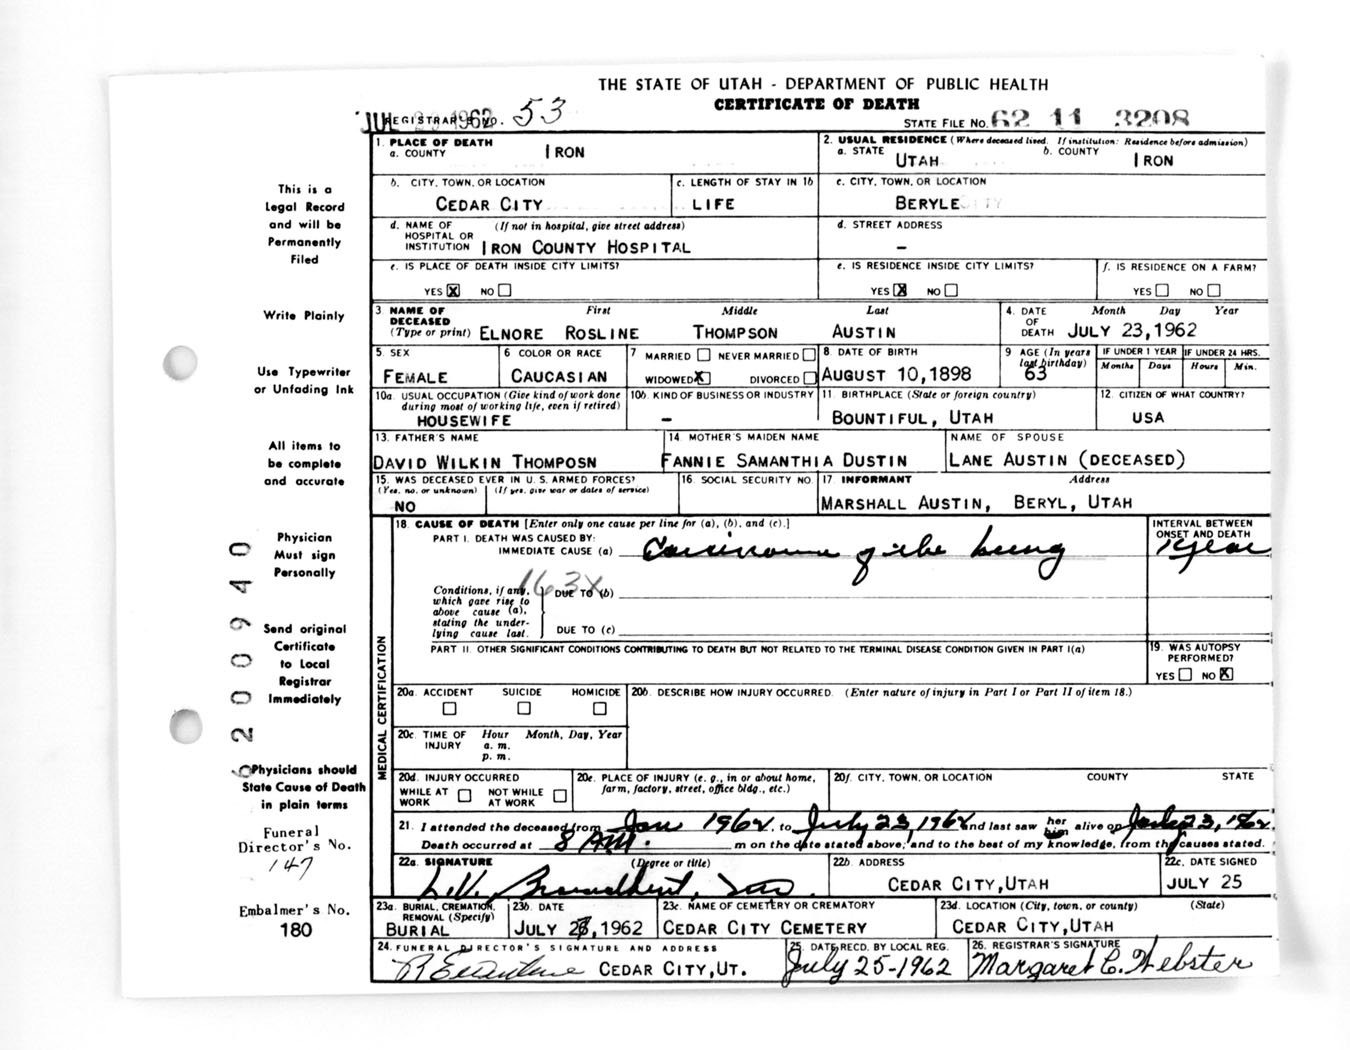 THE STATE OF UTAH - DEPARTMENT OF PUBLIC HEALTH
CERTIFICATE OF DEATH
JUL 1962 REGISTRAR'S NO. 53
STATE FILE NO. 62 11 3208
1. PLACE OF DEATH
a. COUNTY IRON
2. USUAL RESIDENCE (Where deceased lived. If institution: Residence before admission)
a. STATE UTAH b. COUNTY IRON
b. CITY, TOWN, OR LOCATION CEDAR CITY
c. LENGTH OF STAY IN 1b LIFE
c. CITY, TOWN, OR LOCATION BERYLE
d. NAME OF HOSPITAL OR INSTITUTION (If not in hospital, give street address) IRON COUNTY HOSPITAL
d. STREET ADDRESS –
e. IS PLACE OF DEATH INSIDE CITY LIMITS? YES X NO
e. IS RESIDENCE INSIDE CITY LIMITS? YES X NO
f. IS RESIDENCE ON A FARM? YES NO
3. NAME OF DECEASED (Type or print) First Middle Last
ELNORE ROSLINE THOMPSON AUSTIN
4. DATE OF DEATH Month Day Year
JULY 23,1962
5. SEX FEMALE
6 COLOR OR RACE CAUCASIAN
7 MARRIED NEVER MARRIED
WIDOWED X DIVORCED
8. DATE OF BIRTH AUGUST 10,1898
9 AGE (In years last birthday) 63
IF UNDER 1 YEAR Months Days
IF UNDER 24 HRS. Hours Min.
10a. USUAL OCCUPATION (Give kind of work done during most of working life, even if retired) HOUSEWIFE
10b. KIND OF BUSINESS OR INDUSTRY –
11. BIRTHPLACE (State or foreign country) BOUNTIFUL, UTAH
12. CITIZEN OF WHAT COUNTRY? USA
13. FATHER'S NAME DAVID WILKIN THOMPOSN
14. MOTHER'S MAIDEN NAME FANNIE SAMANTHIA DUSTIN
NAME OF SPOUSE LANE AUSTIN (DECEASED)
15. WAS DECEASED EVER IN U. S. ARMED FORCES?
(Yes, no, or unknown) (If yes, give war or dates of service)
NO
16. SOCIAL SECURITY NO.
17. INFORMANT Address
MARSHALL AUSTIN, BERYL, UTAH
18. CAUSE OF DEATH [Enter only one cause per line for (a), (b), and (c).]
PART I. DEATH WAS CAUSED BY:
IMMEDIATE CAUSE (a) Carcinoma of the lung
INTERVAL BETWEEN ONSET AND DEATH
1 year
163X
Conditions, if any, which gave rise to above cause (a), stating the underlying cause last.
DUE TO (b)
DUE TO (c)
PART II. OTHER SIGNIFICANT CONDITIONS CONTRIBUTING TO DEATH BUT NOT RELATED TO THE TERMINAL DISEASE CONDITION GIVEN IN PART I(a)
19. WAS AUTOPSY PERFORMED?
YES NO X
MEDICAL CERTIFICATION
20a. ACCIDENT SUICIDE HOMICIDE
20b. DESCRIBE HOW INJURY OCCURRED. (Enter nature of injury in Part I or Part II of item 18.)
20c. TIME OF INJURY Hour Month, Day, Year
a. m.
p. m.
20d. INJURY OCCURRED
WHILE AT WORK NOT WHILE AT WORK
20e. PLACE OF INJURY (e. g., in or about home, farm, factory, street, office bldg., etc.)
20f. CITY, TOWN, OR LOCATION COUNTY STATE
21. I attended the deceased from Jan 1962, to July 23, 1962 and last saw her him alive on July 23, 1962.
Death occurred at 8 AM. m on the date stated above; and to the best of my knowledge, from the causes stated.
22a. SIGNATURE (Degree or title)
L.V. Broadbent,
22b. ADDRESS CEDAR CITY, UTAH
22c. DATE SIGNED JULY 25
23a. BURIAL, CREMATION, REMOVAL (Specify) BURIAL
23b. DATE JULY 2, 1962
23c. NAME OF CEMETERY OR CREMATORY CEDAR CITY CEMETERY
23d. LOCATION (City, town, or county) (State) CEDAR CITY, UTAH
24. FUNERAL DIRECTOR'S SIGNATURE AND ADDRESS
CEDAR CITY, UT.
25. DATE RECD. BY LOCAL REG. July 25-1962
26. REGISTRAR'S SIGNATURE Margaret C. Webster
This is a
Legal Record
and will be
Permanently
Filed
Write Plainly
Use Typewriter
or Unfading Ink
All items to
be complete
and accurate
Physician
Must sign
Personally
Send original
Certificate
to Local
Registrar
Immediately
Physicians should
State Cause of Death
in plain terms
Funeral
Director's No.
147
Embalmer's No.
180
200940